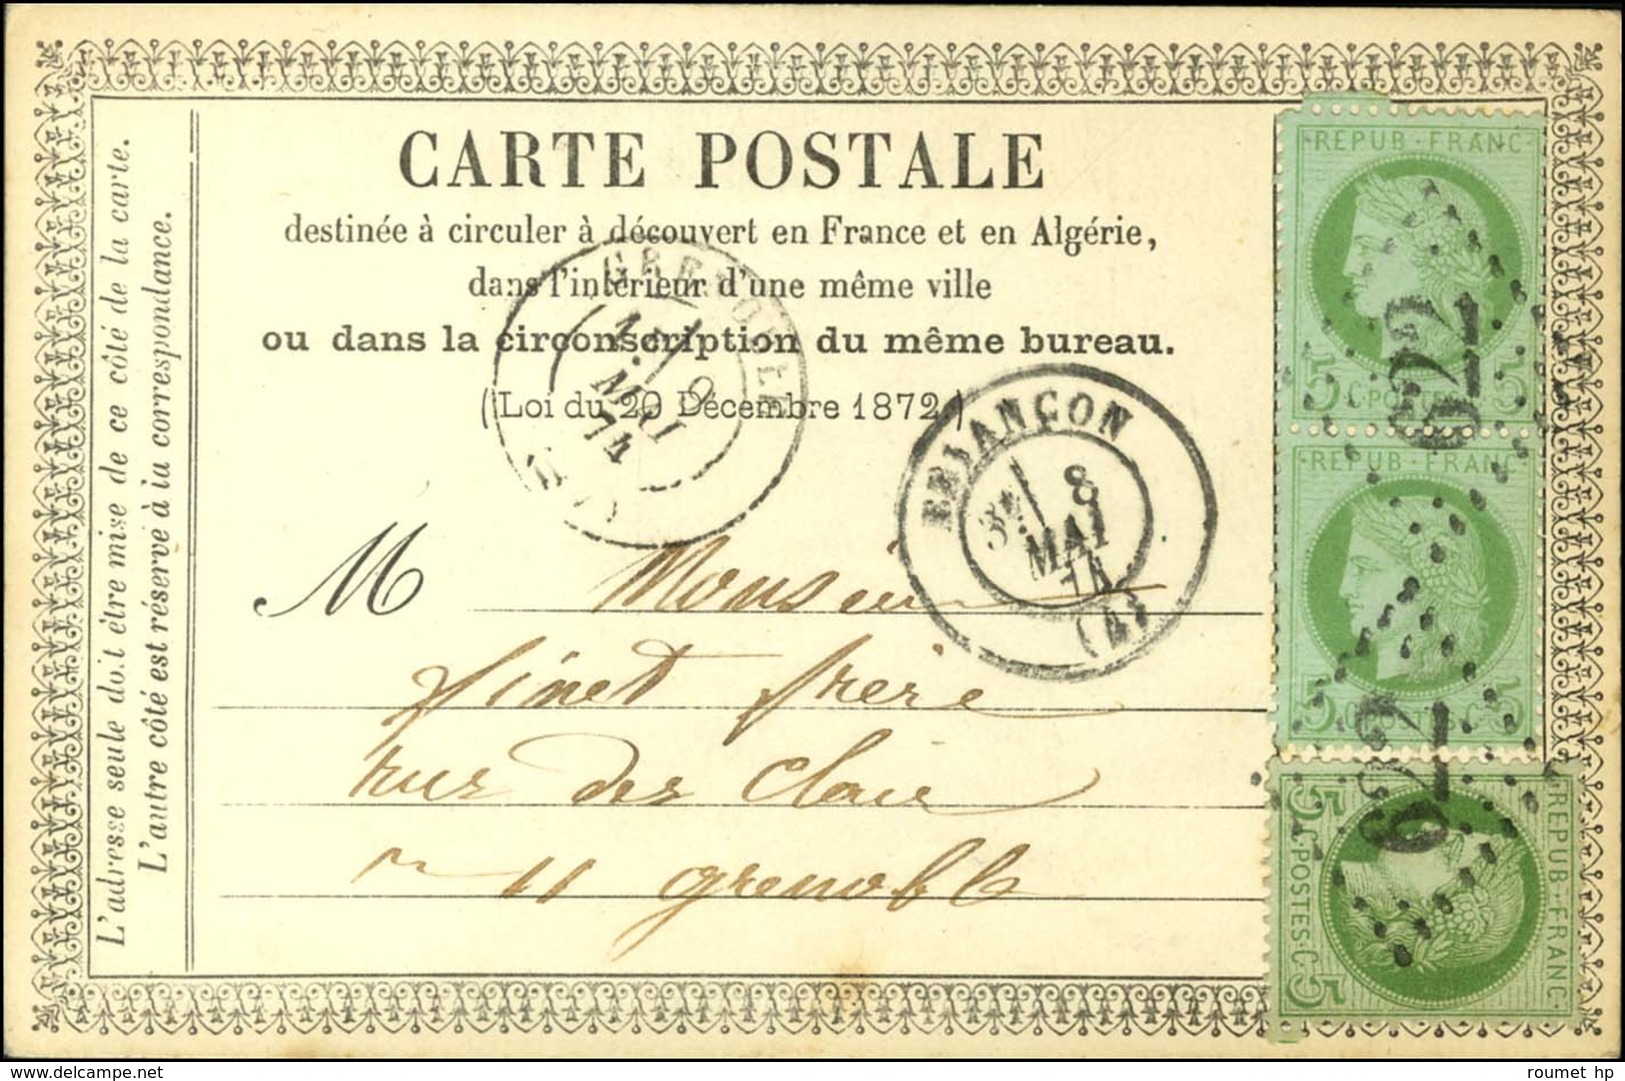 CARTE POSTALE
destinée à circuler à découvert en France et en Algérie,
dans l'intérieur d'une même ville
ou dans la circonscription du même bureau.
(Loi du 20 Décembre 1872)
L'adresse seule doit être mise de ce côté de la carte.
L'autre côté est réservé à la correspondance.
GRENOBLE
9
MAI
74
BRIANÇON
3E 8
MAI
74
(4)
M Monsieur
finet frere
rue des
11 grenoble
REPUB·FRANC·
5 C·POSTES 5
622
REPUB·FRANC·
5 5
622
REPUB·FRANC·
5 C·POSTES·C 5
delcampe.net
roumet hp